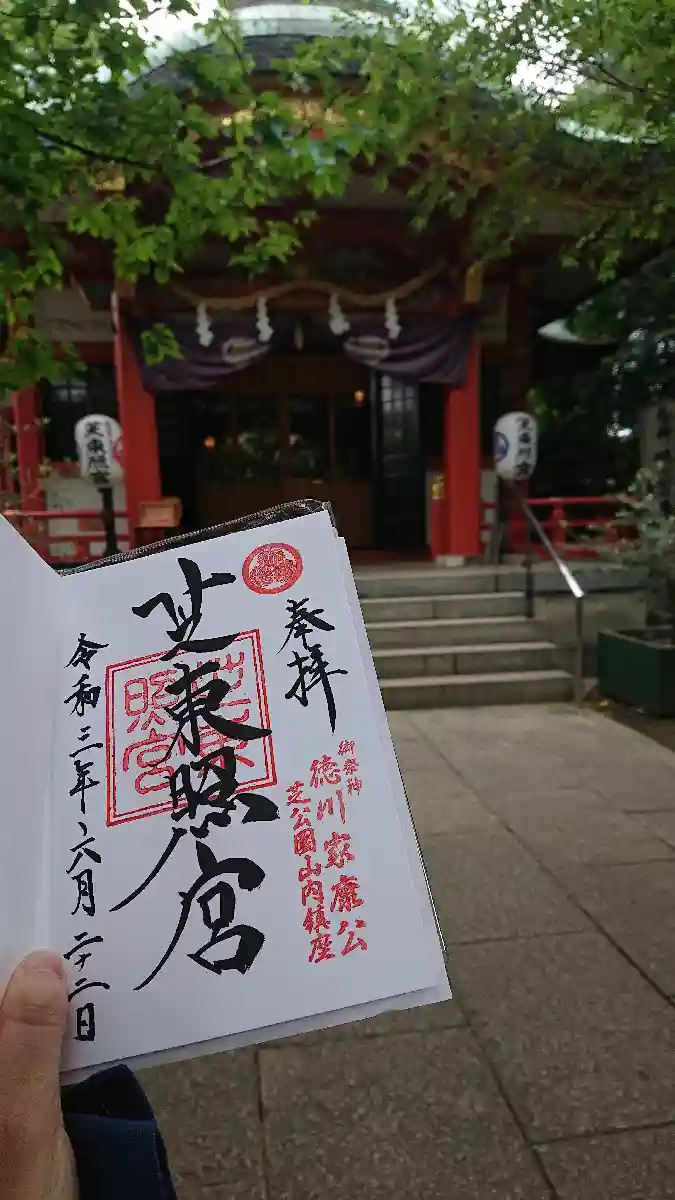 奉拝
御祭神
徳川家康公
芝公園山内鎮座
芝東照宮
芝東照宮
令和三年、六月二十二日
芝東照宮
芝東照宮